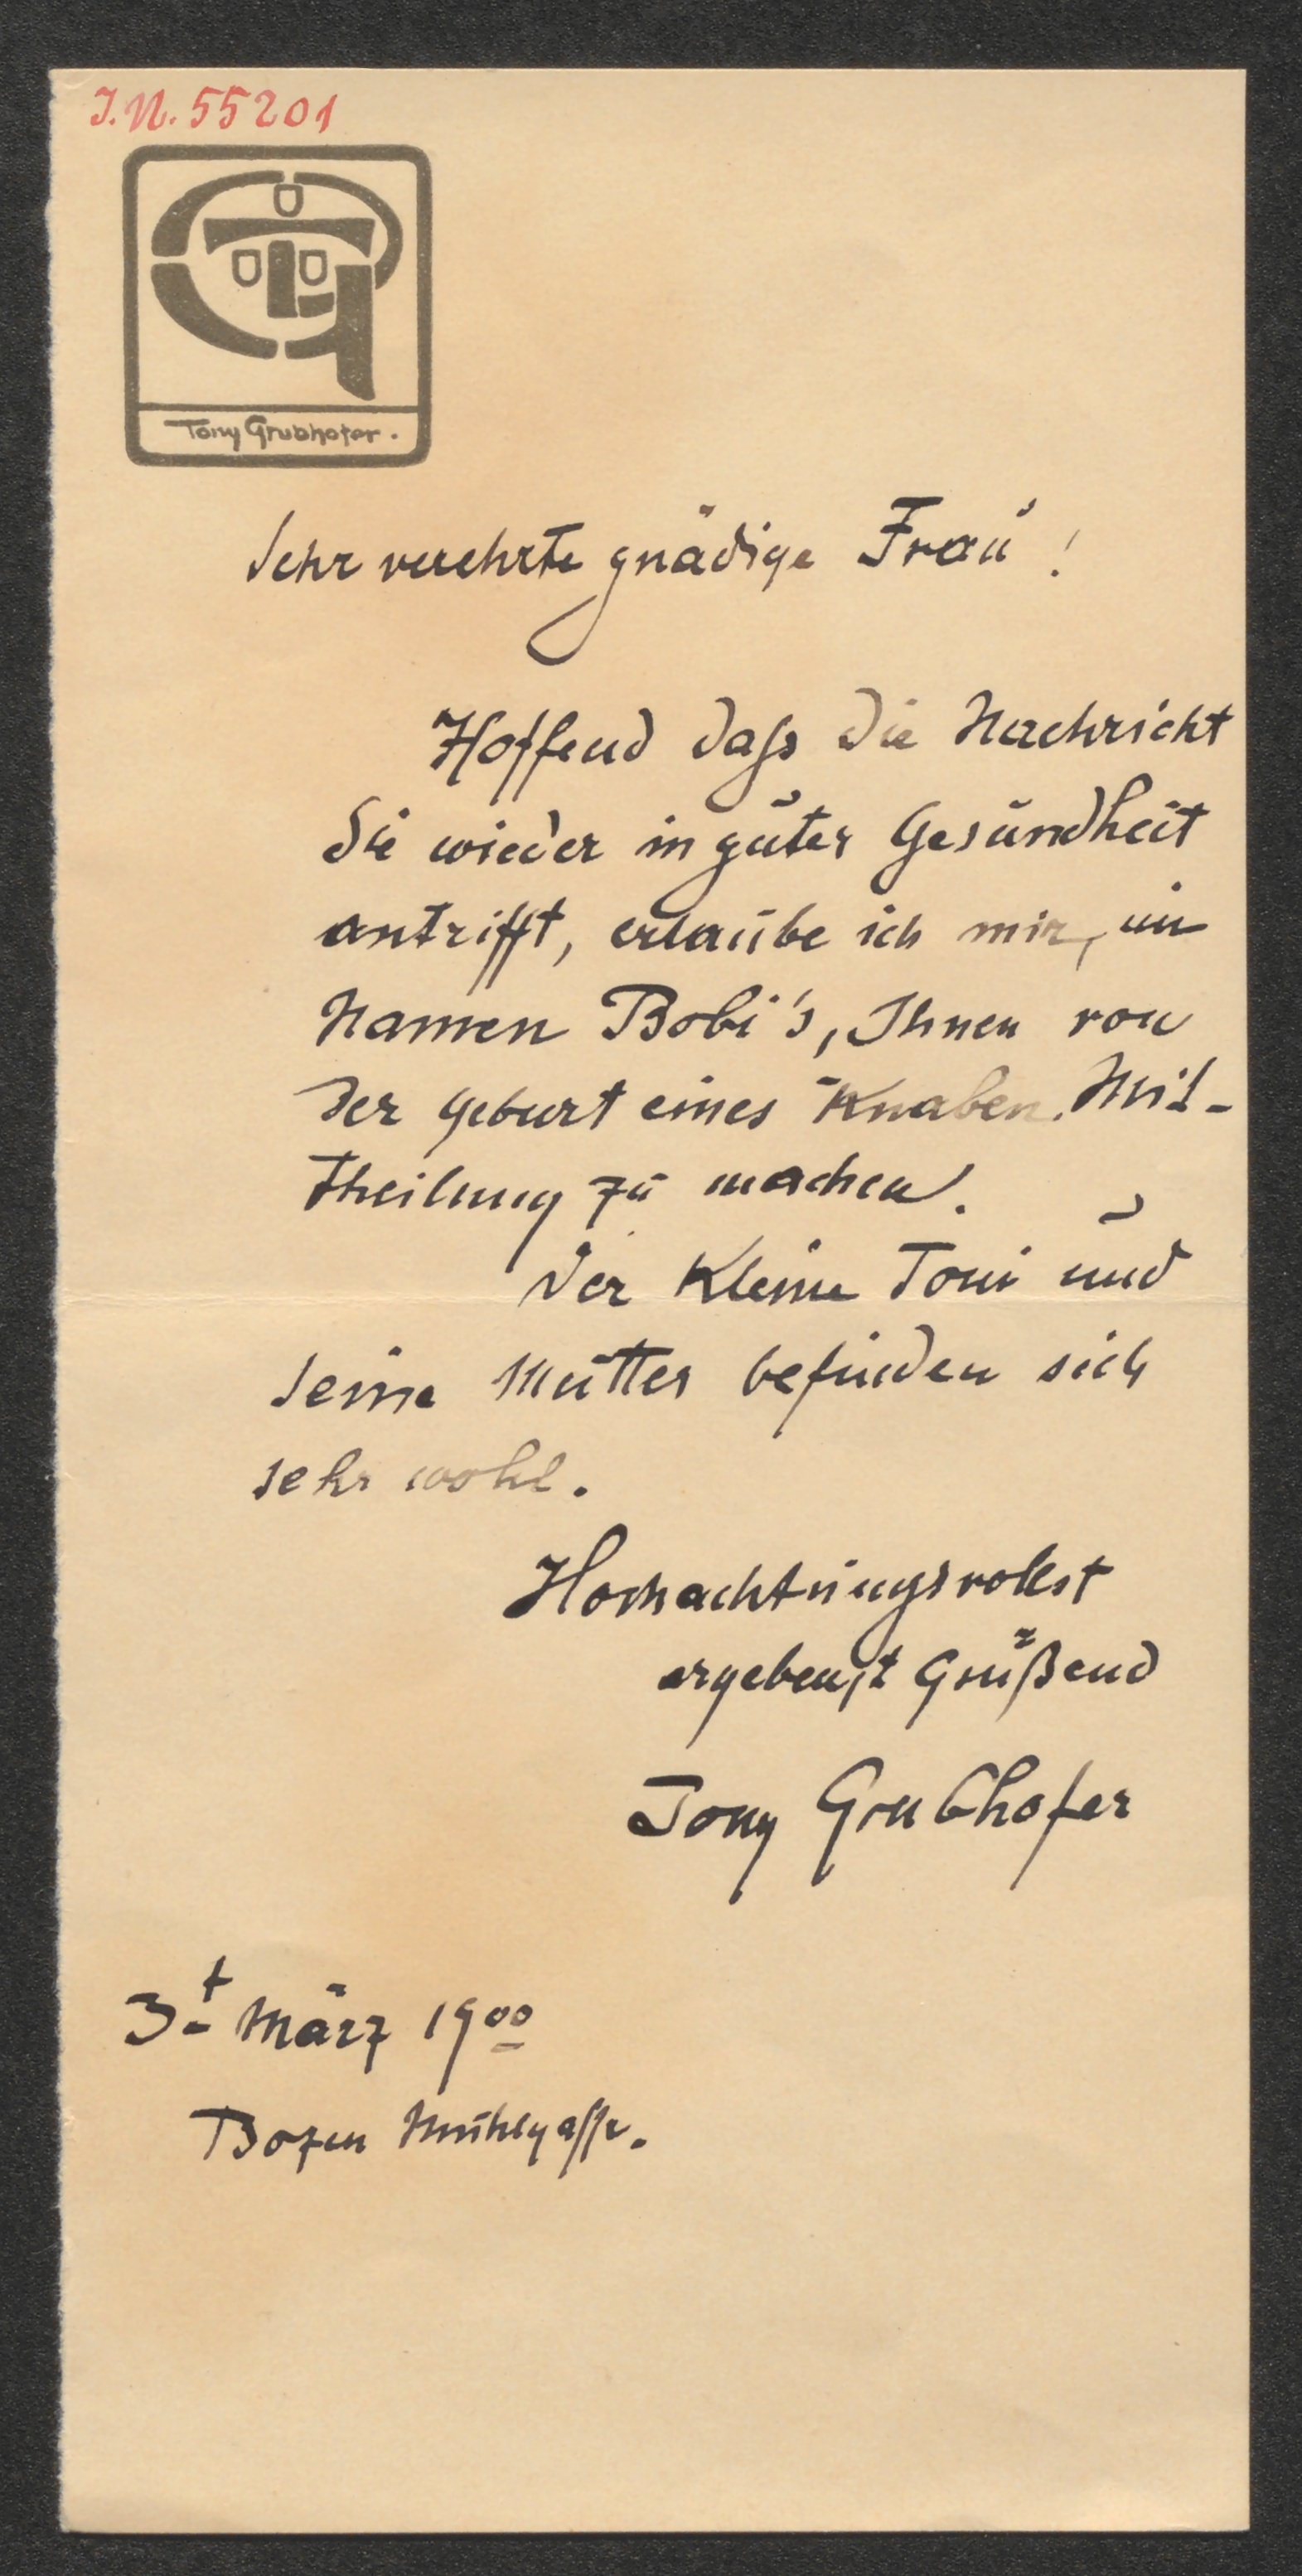 I.N. 55201
Tony Grubhofer.
Sehr verehrte gnädige Frau!
Hoffend dass die Nachricht
Sie wieder in guter Gesundheit
antrifft, erlaube ich mir, im
Namen Bobi's, Ihnen von
der Geburt eines Knaben Mit-
theilung zu machen.
Der Kleine Toni und
seine Mutter befinden sich
sehr wohl.
Hochachtungsvollst
ergebenst Grüßend
Tony Grubhofer
3t März 1900
Bozen Mühlgasse.